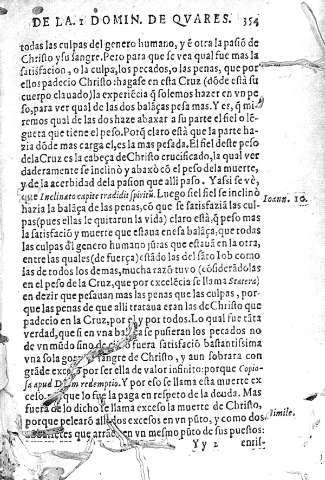 DE LA. 1 DOMIN. DE QVARES. 354
todas las culpas del genero humano, y ē otra la pasiō de
Christo y su sangre. Pero para que se vea qual fue mas la
satisfacion, o la culpa, los pecados, o las penas, que por
ellos padecio Christo: hagase en esta Cruz (dōde està su
cuerpo clauado) la experiēcia q̃ solemos hazer en vn pe
so, para ver qual de las dos balāças pesa mas. Y es, q̃ mi-
remos qual de las dos haze abaxar a su parte el fiel o lē-
guera que tiene el peso. Porq̃ claro està que la parte ha-
zia dōde mas carga el, es la mas pesada. El fiel deste peso
dela Cruz es la cabeça de Christo crucificado, la qual ver
daderamente se inclinò y abaxò cō el peso dela muerte,
y de la acerbidad dela pasion que alli paso. Y assi se vè,
que Inclinato capite tradidit spiritū. Luego si el fiel se inclinò
hazia la balāça de las penas, cō que se satisfazia las cul-
pas (pues ellas le quitaron la vida) claro està, q̃ peso mas
la satisfació y muerte que estaua en esa balāça, que todas
las culpas dl genero humano jūtas que estauā en la otra,
entre las quales (de fuerça) estādo las del sāto Iob como
las de todos los demas, mucha razō tuvo (cōsiderādolas
en el peso de la Cruz, que por excelēcia se llama Statera)
en dezir que pesauan mas las penas que las culpas, por-
que las penas de que alli trataua eran las de Christo que
padecio en la Cruz, por el y por todos. Lo qual fue tāta
verdad, que si en vna se pusieran los pecados no
de vn mūdo sino de fuera satisfació bastantissima
vna sola sangre de Christo, y aun sobrara con
grāde exceso por ser ella de valor infinito: porque Copio-
sa apud redemptio. Y por eso se llama esta muerte ex
ceso. que lo fue la paga en respeto de la deuda. Mas
fuera de lo dicho se llama exceso la muerte de Christo,
porque pelearō alli dos excesos en vn pūto, y como dos
que arrāe en vn mesmo pūto de sus puestos:
Yy 2 entil-
Ioann. 10.
simile.